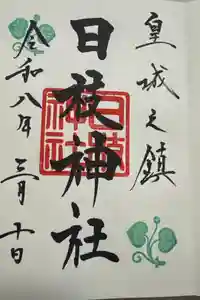 皇城之鎮
日枝神社
令和八年 三月 十日